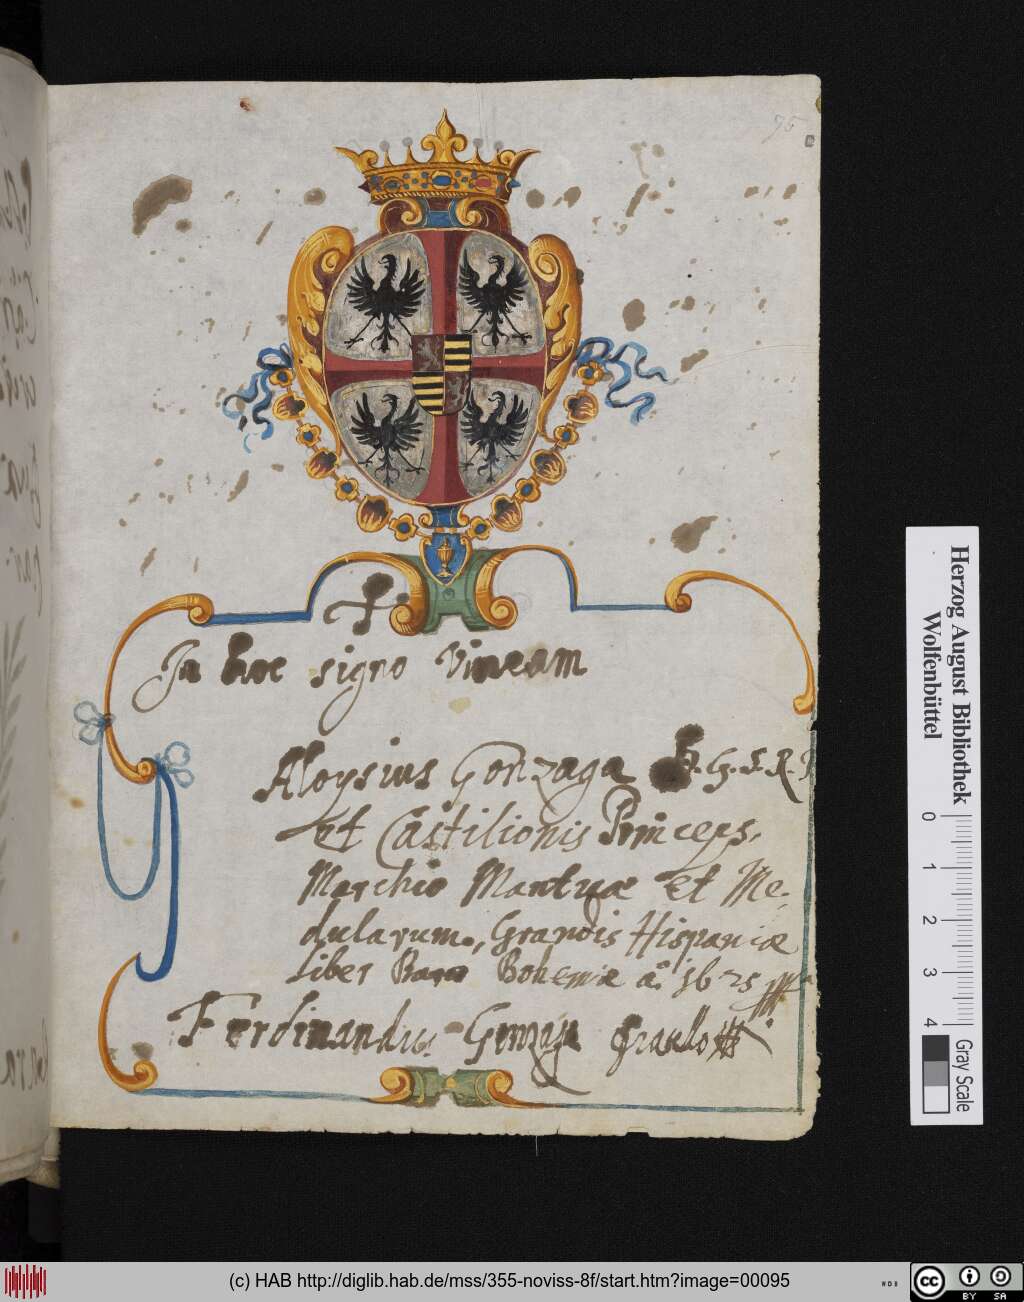 75
In hoc signo Vincam
Aloysius Gonzaga D. G. S. R. I
et Castilionis Princeps,
Marchio Mantuæ et Me-
dularum, Grandis Hispaniæ
Liber Baro Bohemiæ aº 1625
Ferdinandus Gonzaga
Herzog August Bibliothek
Wolfenbüttel
0 1 2 3 4
Gray Scale
(c) HAB http://diglib.hab.de/mss/355-noviss-8f/start.htm?image=00095
WDB
cc BY SA